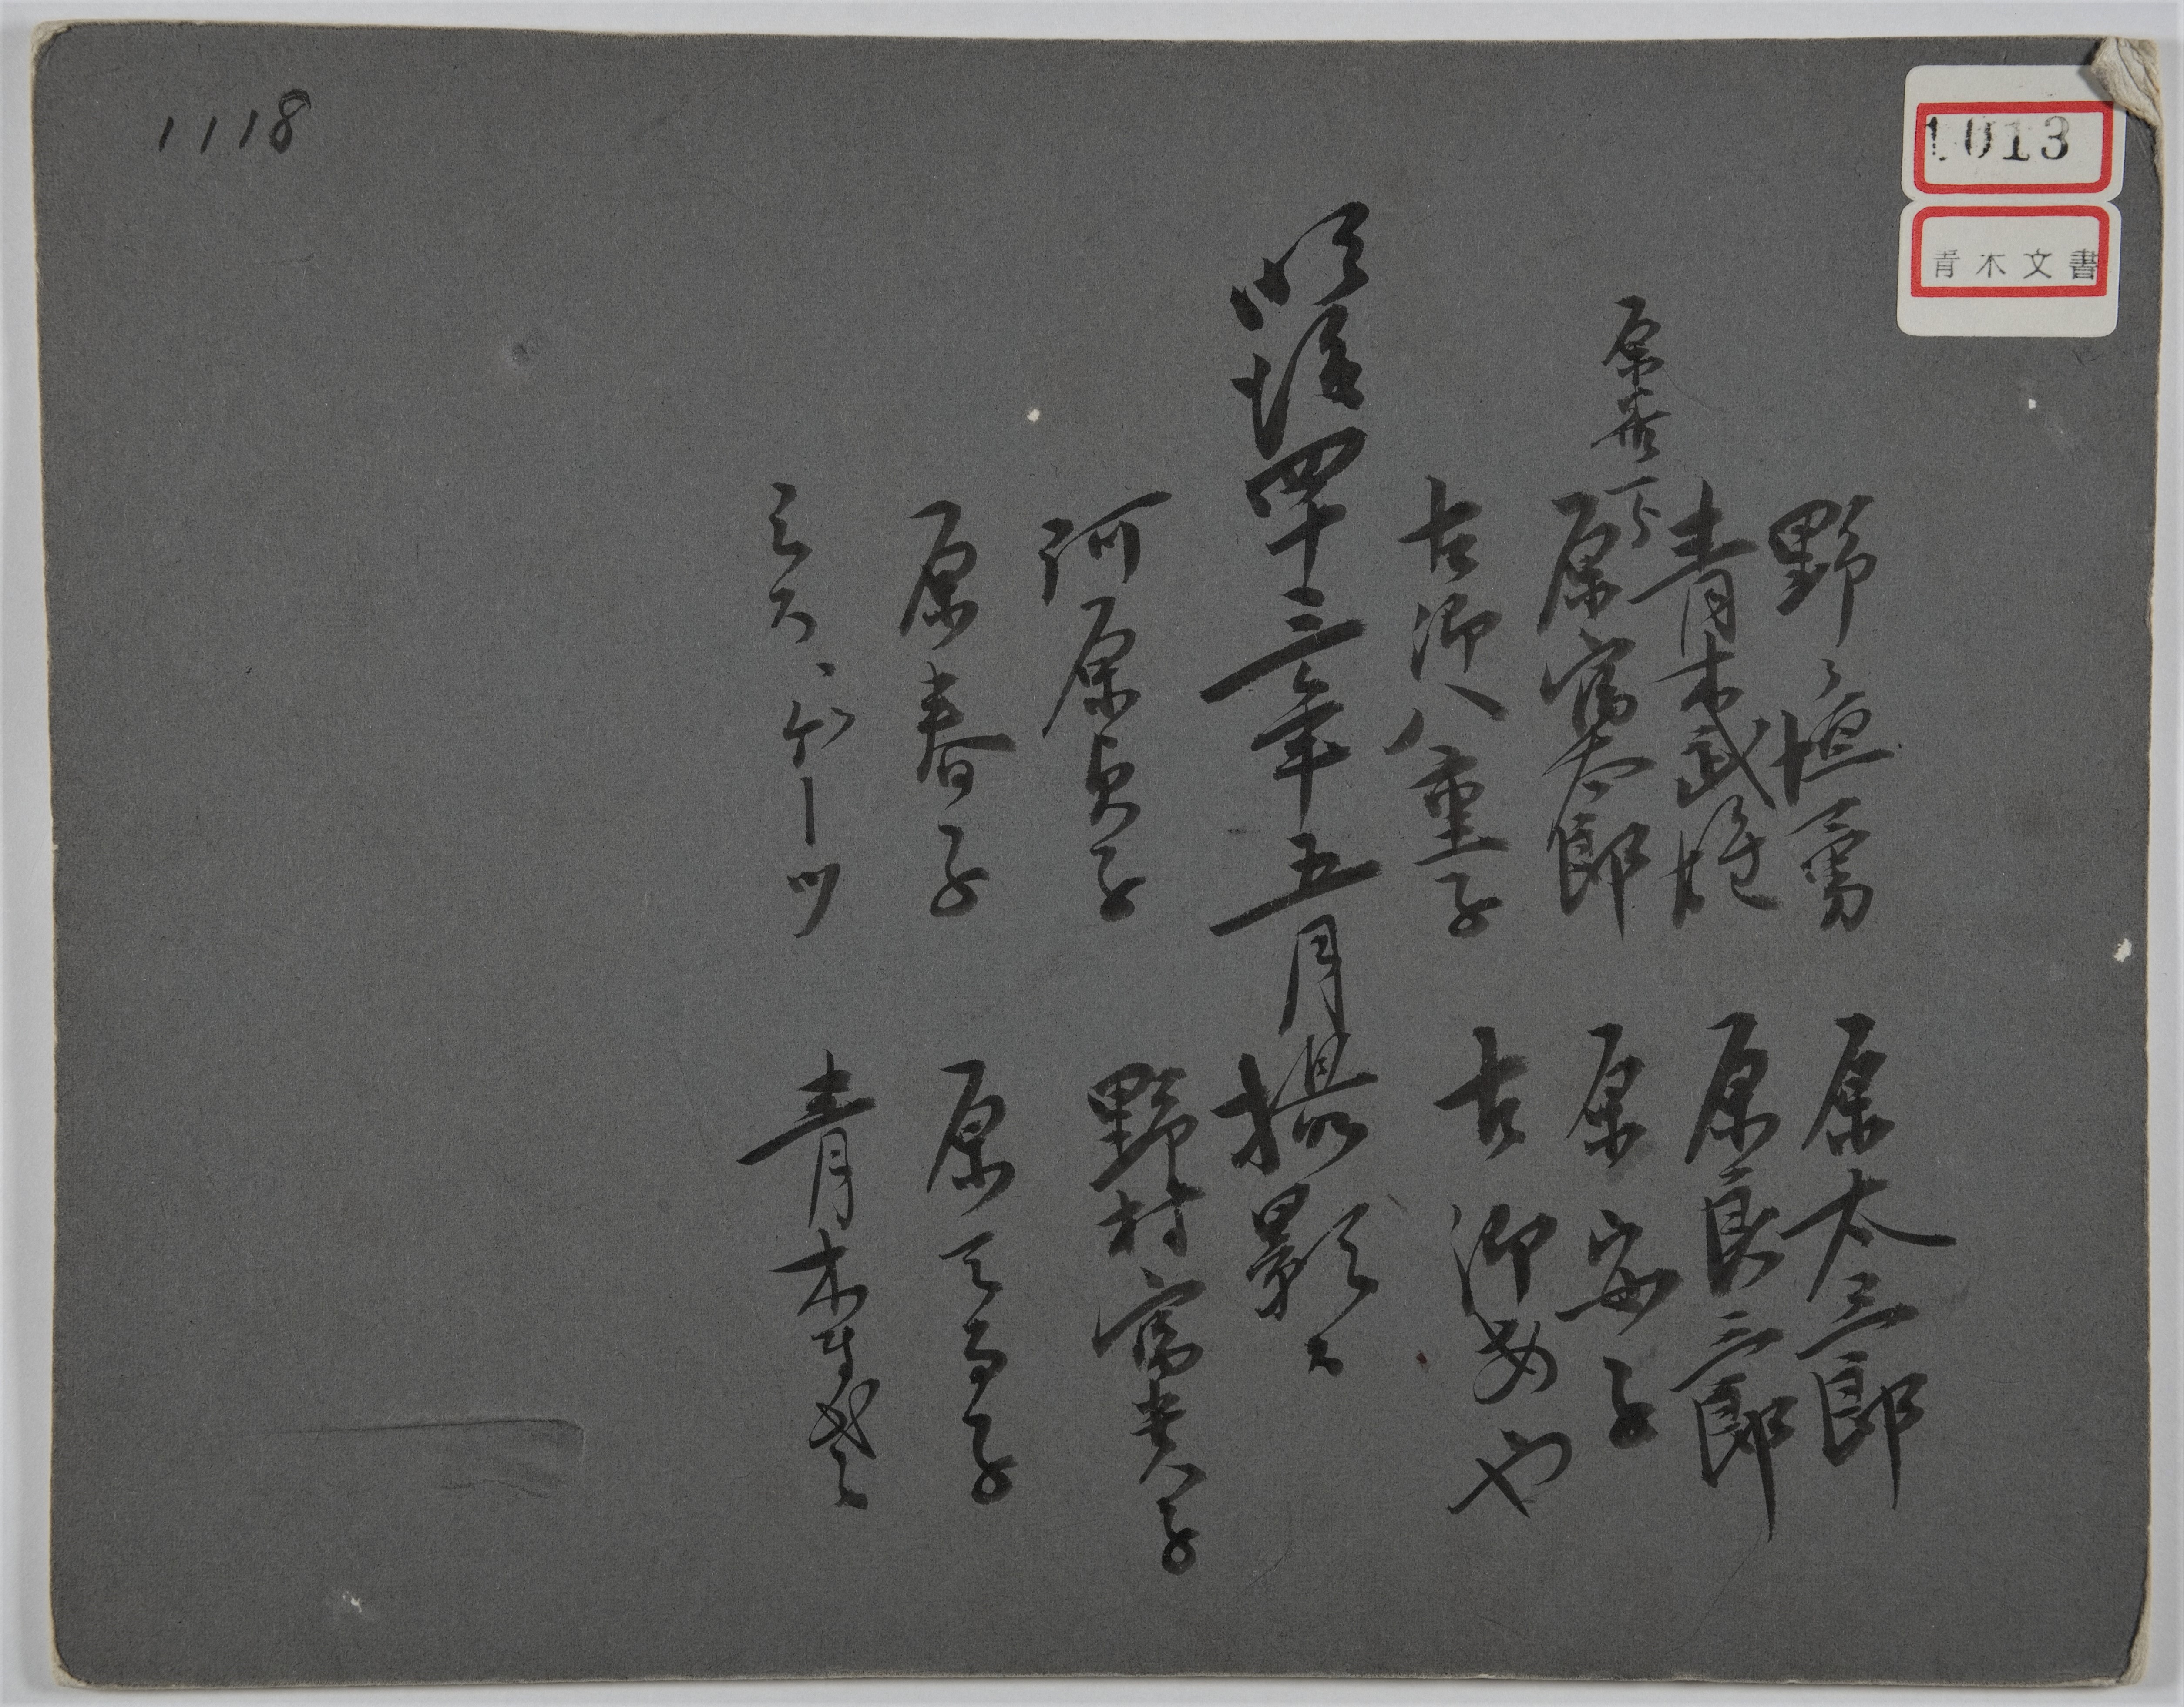 1118
1013
青木文書
野々垣勇
原太三郎
青木武雄
原良三郎
原善一郎
原富太郎
原安子
古郷八重子
古郷あや
明治四十三年五月撮影ス
河原貞子
野村富貴子
原春子
原 子
ミス、ゲーツ
青木